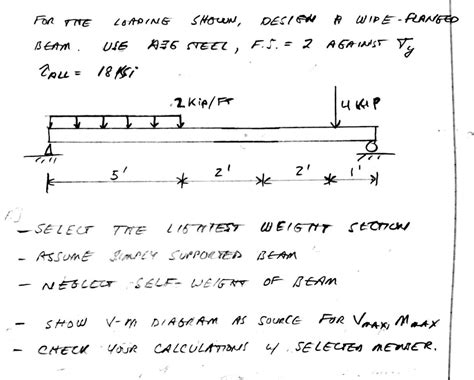 FOR THE LOADING SHOWN, DESIGN A WIDE-FLANGED
BEAM. USE A36 STEEL, F.S. = 2 AGAINST σy
τALL = 18 KSi
2 KIP/FT
4 KIP
5' 2' 2' 1'
- SELECT THE LIGHTEST WEIGHT SECTION
- ASSUME SIMPLY SUPPORTED BEAM
- NEGLECT SELF-WEIGHT OF BEAM
- SHOW V-M DIAGRAM AS SOURCE FOR VMAX, MMAX
- CHECK YOUR CALCULATIONS W/ SELECTED MEMBER.